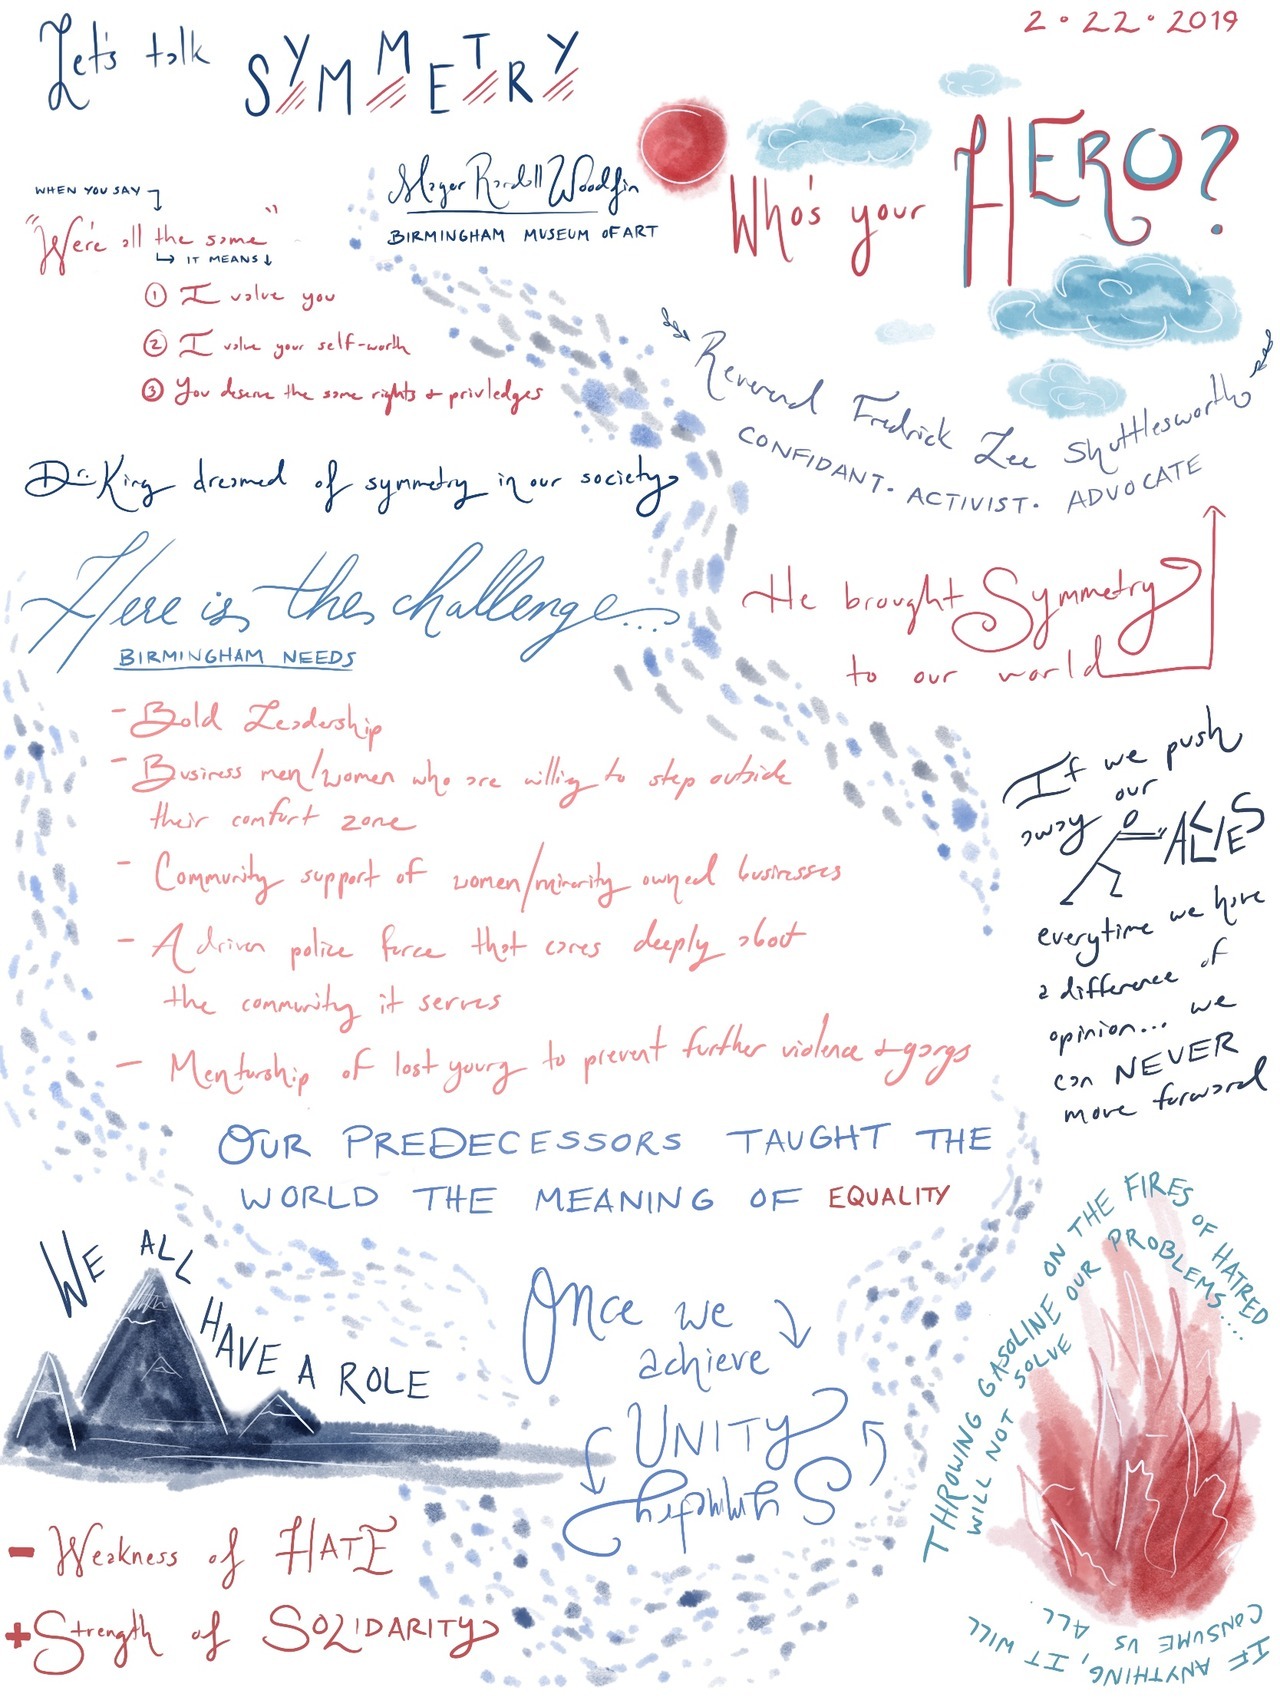 Let's talk SYMMETRY
2·22·2019
Who's your HERO?
Mayor Randall Woodfin
BIRMINGHAM MUSEUM OF ART
WHEN YOU SAY
"We're all the same"
IT MEANS
① I value you
② I value your self-worth
③ You deserve the same rights + privledges
Reverend Fredrick Lee Shuttlesworth
CONFIDANT. ACTIVIST. ADVOCATE
Dr. King dreamed of symmetry in our society
He brought Symmetry
to our world
Here is the challenge...
BIRMINGHAM NEEDS
- Bold Leadership
- Business men/women who are willing to step outside
their comfort zone
- Community support of women/minority owned businesses
- A driven police force that cares deeply about
the community it serves
- Mentorship of lost young to prevent further violence + gangs
If we push
our
away ALLIES
everytime we have
a difference of
opinion... we
can NEVER
move forward
OUR PREDECESSORS TAUGHT THE
WORLD THE MEANING OF EQUALITY
WE ALL HAVE A ROLE
Once we
achieve
UNITY
Symmetry
THROWING GASOLINE ON THE FIRES OF HATRED
WILL NOT SOLVE OUR PROBLEMS....
IF ANYTHING, IT WILL
CONSUME US ALL.
- Weakness of HATE
+ Strength of SOLIDARITY